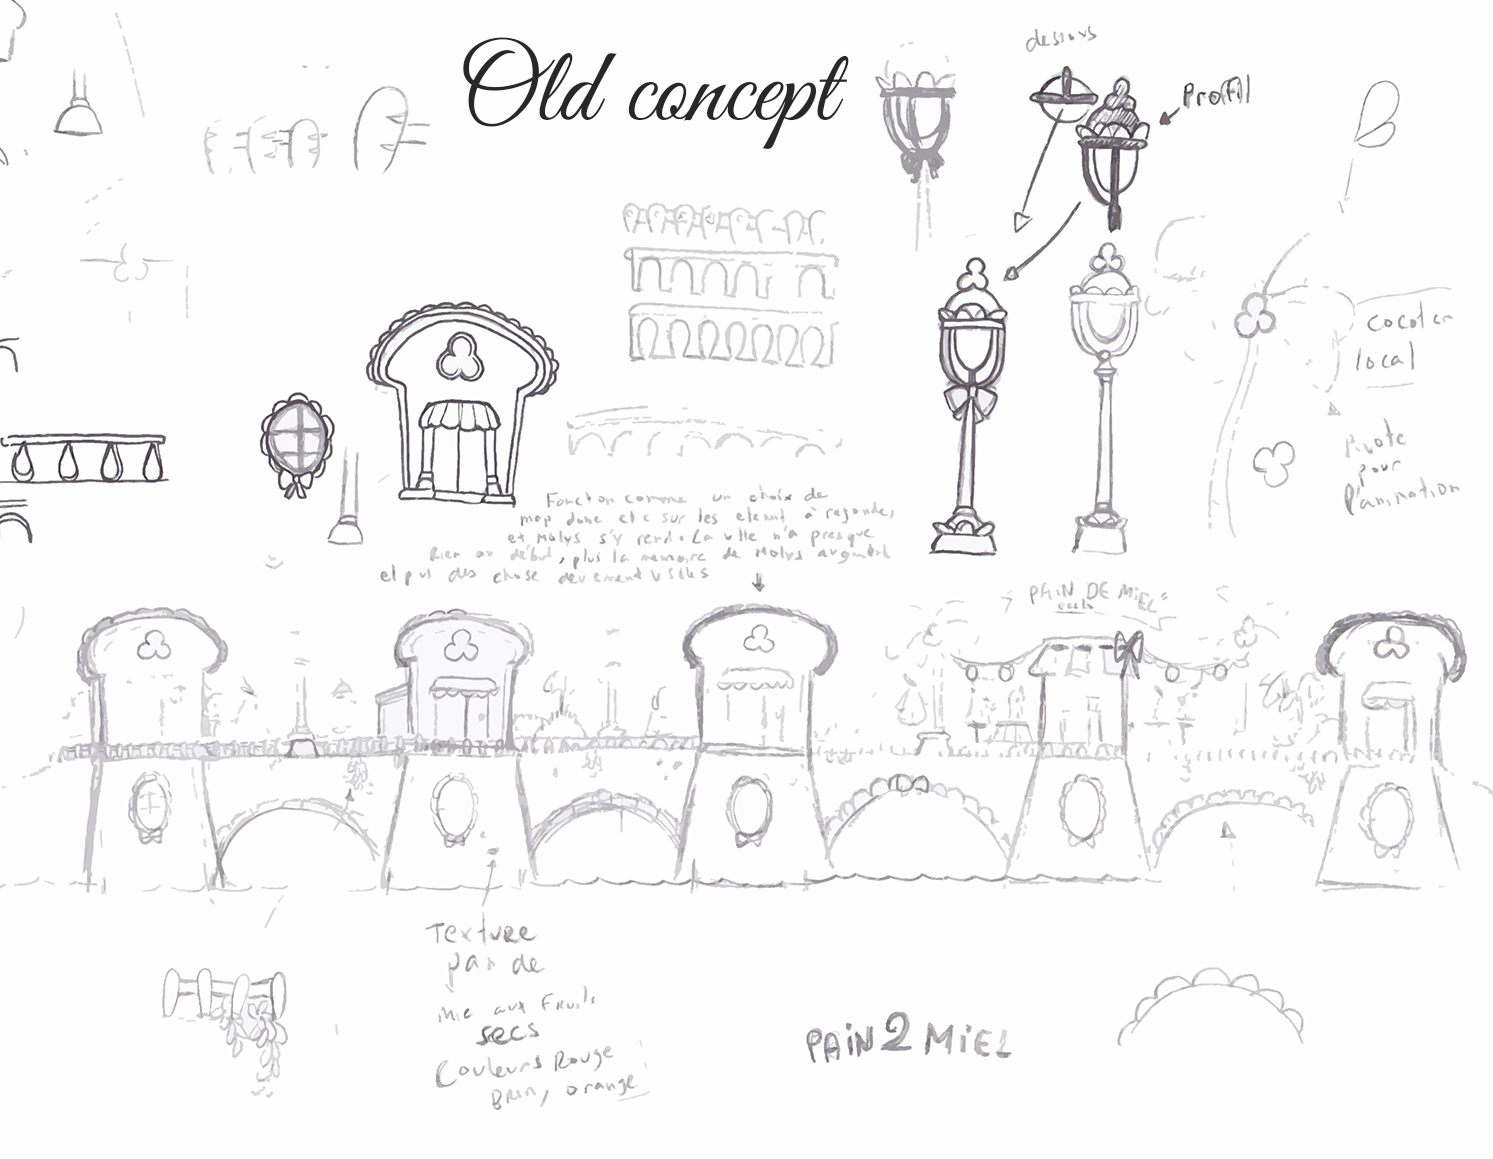 Old concept
dessous
Profil
cocotier
local
Pivote
pour
l'animation
Fonction comme un choix de
map donc clic sur les element à regarder,
et Molys s'y rend. La ville n'a presque
Rien au début, plus la memoire de Molys augmente
et plus des chose deviennent visibles
"PAIN DE MiEL"
Texture
pain de
mie aux Fruits
secs
Couleurs Rouge
Brun, orange
PAiN 2 MiEL